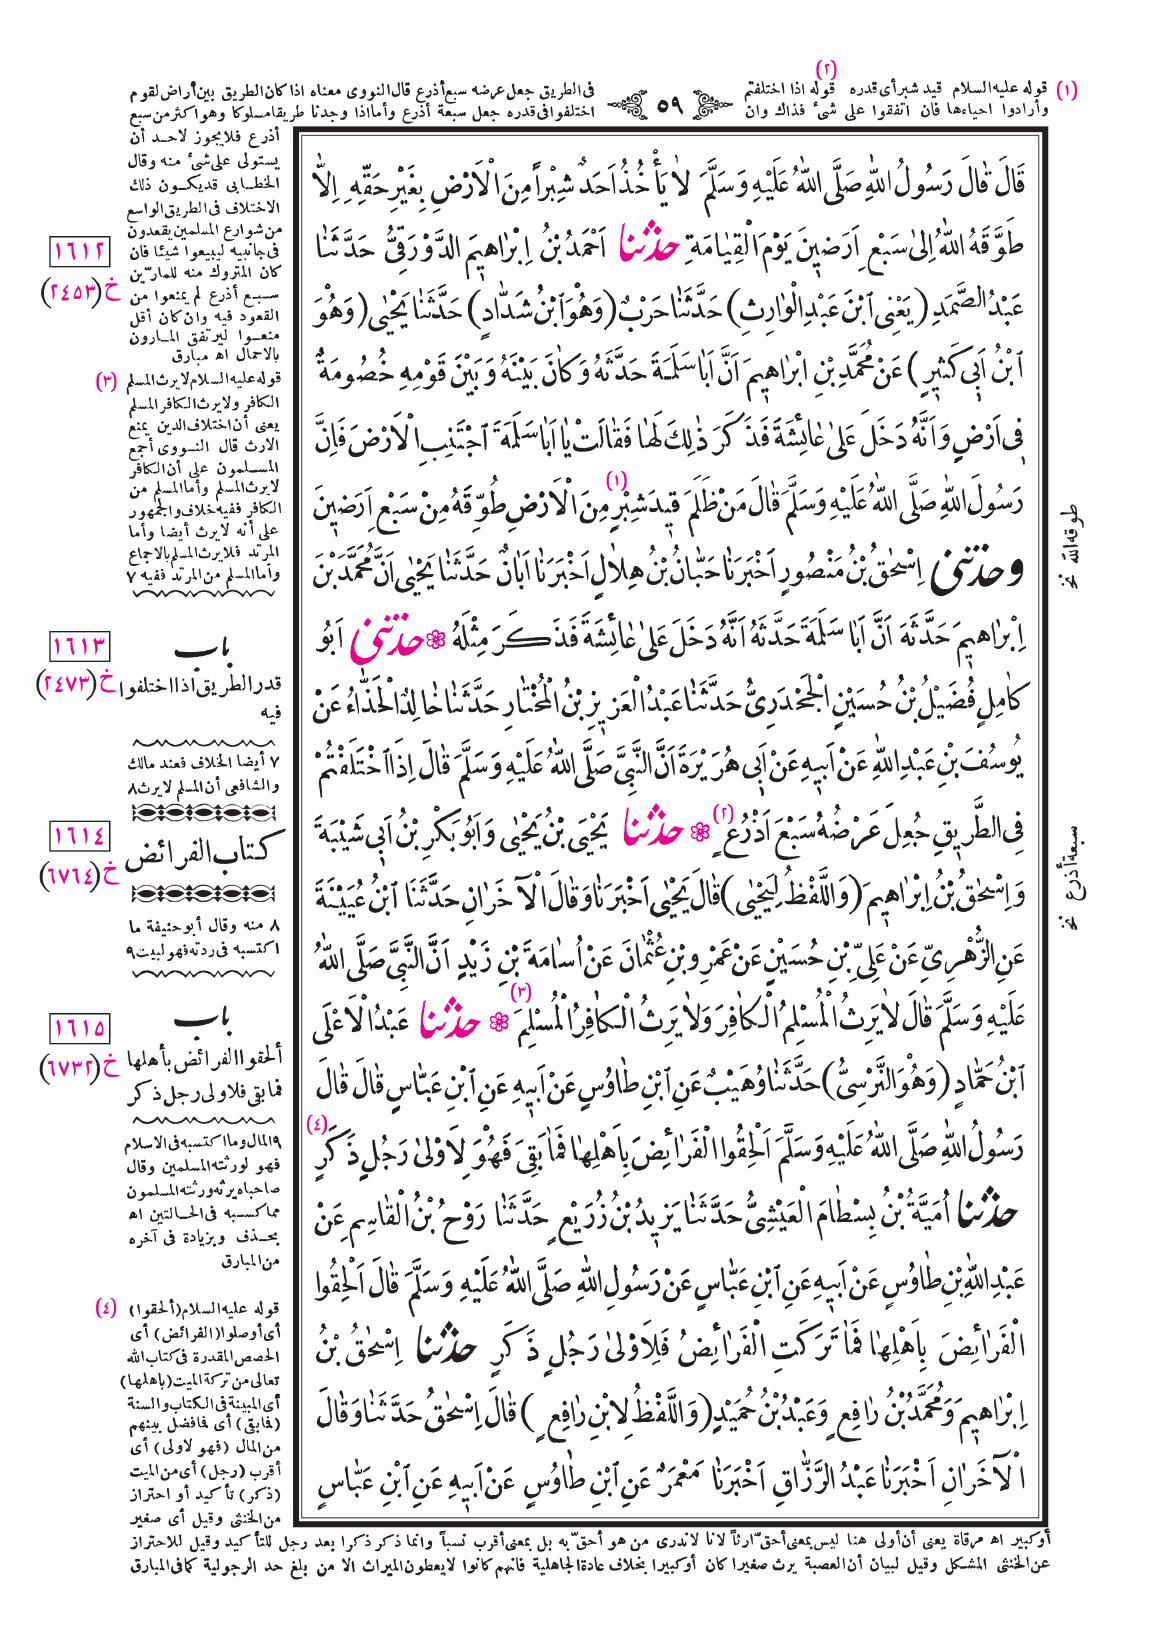 (١) قوله عليه السلام قيد شبر أى قدره (٢) قوله اذا اختلفتم
وأرادوا احياءها فان اتفقوا على شئ فذاك وان
٥٩
فى الطريق جعل عرضه سبع أذرع قال النووى معناه اذا كان الطريق بين أراض لقوم
اختلفوا فى قدره جعل سبعة أذرع وأما اذا وجدنا طريقا مسلوكا وهو اكثر من سبع
قَالَ قَالَ رَسُولُ اللهِ صَلَّى اللهُ عَلَيْهِ وَسَلَّمَ لَا يَأْخُذُ اَحَدٌ شِبْراً مِنَ الْاَرْضِ بِغَيْرِ حَقِّهِ اِلاَّ
طَوَّقَهُ اللهُ اِلىٰ سَبْعِ اَرَضِينَ يَوْمَ الْقِيَامَةِ حدثنا اَحْمَدُ بْنُ اِبْرَاهِيمَ الدَّوْرَقِيُّ حَدَّثَنَا
عَبْدُ الصَّمَدِ (يَعْنِى ابْنَ عَبْدِ الْوَارِثِ) حَدَّثَنَا حَرْبٌ (وَهُوَ ابْنُ شَدَّادٍ) حَدَّثَنَا يَحْيٰى (وَهُوَ
ابْنُ اَبِى كَثِيرٍ) عَنْ مُحَمَّدِ بْنِ اِبْرَاهِيمَ اَنَّ اَبَا سَلَمَةَ حَدَّثَهُ وَكَانَ بَيْنَهُ وَبَيْنَ قَوْمِهِ خُصُومَةٌ
فِى اَرْضٍ وَاَنَّهُ دَخَلَ عَلىٰ عَائِشَةَ فَذَكَرَ ذٰلِكَ لَهَا فَقَالَتْ يَا اَبَا سَلَمَةَ اجْتَنِبِ الْاَرْضَ فَاِنَّ
رَسُولَ اللهِ صَلَّى اللهُ عَلَيْهِ وَسَلَّمَ قَالَ مَنْ ظَلَمَ قِيدَ شِبْرٍ (١) مِنَ الْاَرْضِ طُوِّقَهُ مِنْ سَبْعِ اَرَضِينَ
وحدثنى اِسْحٰقُ بْنُ مَنْصُورٍ اَخْبَرَنَا حَبَّانُ بْنُ هِلَالٍ اَخْبَرَنَا اَبَانٌ حَدَّثَنَا يَحْيٰى اَنَّ مُحَمَّدَ بْنَ
اِبْرَاهِيمَ حَدَّثَهُ اَنَّ اَبَا سَلَمَةَ حَدَّثَهُ اَنَّهُ دَخَلَ عَلىٰ عَائِشَةَ فَذَكَرَ مِثْلَهُ ❁ حدثنى اَبُو
كَامِلٍ فُضَيْلُ بْنُ حُسَيْنٍ الْجَحْدَرِىُّ حَدَّثَنَا عَبْدُ الْعَزِيزِ بْنُ الْمُخْتَارِ حَدَّثَنَا خَالِدٌ الْحَذَّاءُ عَنْ
يُوسُفَ بْنِ عَبْدِ اللهِ عَنْ اَبِيهِ عَنْ اَبِى هُرَيْرَةَ اَنَّ النَّبِىَّ صَلَّى اللهُ عَلَيْهِ وَسَلَّمَ قَالَ اِذَا اخْتَلَفْتُمْ
فِى الطَّرِيقِ جُعِلَ عَرْضُهُ سَبْعَ اَذْرُعٍ (٢) ❁ حدثنا يَحْيَى بْنُ يَحْيٰى وَاَبُو بَكْرِ بْنُ اَبِى شَيْبَةَ
وَاِسْحٰقُ بْنُ اِبْرَاهِيمَ (وَاللَّفْظُ لِيَحْيٰى) قَالَ يَحْيٰى اَخْبَرَنَا وَقَالَ الْآخَرَانِ حَدَّثَنَا ابْنُ عُيَيْنَةَ
عَنِ الزُّهْرِىِّ عَنْ عَلِىِّ بْنِ حُسَيْنٍ عَنْ عَمْرِو بْنِ عُثْمَانَ عَنْ اُسَامَةَ بْنِ زَيْدٍ اَنَّ النَّبِىَّ صَلَّى اللهُ
عَلَيْهِ وَسَلَّمَ قَالَ لَا يَرِثُ الْمُسْلِمُ الْكَافِرَ وَلَا يَرِثُ الْكَافِرُ الْمُسْلِمَ (٣) ❁ حدثنا عَبْدُ الْاَعْلَى
ابْنُ حَمَّادٍ (وَهُوَ النَّرْسِىُّ) حَدَّثَنَا وُهَيْبٌ عَنِ ابْنِ طَاوُسٍ عَنْ اَبِيهِ عَنِ ابْنِ عَبَّاسٍ قَالَ قَالَ
رَسُولُ اللهِ صَلَّى اللهُ عَلَيْهِ وَسَلَّمَ اَلْحِقُوا الْفَرَائِضَ بِاَهْلِهَا فَمَا بَقِىَ فَهُوَ لِاَوْلىٰ رَجُلٍ ذَكَرٍ (٤)
حدثنا اُمَيَّةُ بْنُ بِسْطَامَ الْعَيْشِىُّ حَدَّثَنَا يَزِيدُ بْنُ زُرَيْعٍ حَدَّثَنَا رَوْحُ بْنُ الْقَاسِمِ عَنْ
عَبْدِ اللهِ بْنِ طَاوُسٍ عَنْ اَبِيهِ عَنِ ابْنِ عَبَّاسٍ عَنْ رَسُولِ اللهِ صَلَّى اللهُ عَلَيْهِ وَسَلَّمَ قَالَ اَلْحِقُوا
الْفَرَائِضَ بِاَهْلِهَا فَمَا تَرَكَتِ الْفَرَائِضُ فَلِاَوْلىٰ رَجُلٍ ذَكَرٍ حدثنا اِسْحٰقُ بْنُ
اِبْرَاهِيمَ وَمُحَمَّدُ بْنُ رَافِعٍ وَعَبْدُ بْنُ حُمَيْدٍ (وَاللَّفْظُ لِابْنِ رَافِعٍ) قَالَ اِسْحٰقُ حَدَّثَنَا وَقَالَ
الْآخَرَانِ اَخْبَرَنَا عَبْدُ الرَّزَّاقِ اَخْبَرَنَا مَعْمَرٌ عَنِ ابْنِ طَاوُسٍ عَنْ اَبِيهِ عَنِ ابْنِ عَبَّاسٍ
طوقه الله نخ
سبعة أذرع نخ
أذرع فلا يجوز لاحد أن
يستولى على شئ منه وقال
الخطابى قد يكون ذلك
الاختلاف فى الطريق الواسع
من شوارع المسلمين يقعدون
فى جانبيه ليبيعوا شيئا فان
كان المتروك منه للمارّين
سبع أذرع لم يمنعوا من
القعود فيه وان كان أقل
منعوا ليرتفق المارون
بالاحمال اه مبارق
١٦١٢
خ (٢٤٥٣)
(٣) قوله عليه السلام لا يرث المسلم
الكافر ولا يرث الكافر المسلم
يعنى أن اختلاف الدين يمنع
الارث قال النووى أجمع
المسلمون على أن الكافر
لا يرث المسلم وأما المسلم من
الكافر ففيه خلاف والجمهور
على أنه لا يرث أيضا وأما
المرتد فلا يرث المسلم بالاجماع
وأما المسلم من المرتد ففيه ٧
باب
١٦١٣
قدر الطريق اذا اختلفوا
خ (٢٤٧٣)
فيه
٧ أيضا الخلاف فعند مالك
والشافعى أن المسلم لا يرث ٨
١٦١٤
كتاب الفرائض
خ (٦٧٦٤)
٨ منه وقال أبو حنيفة ما
اكتسبه فى ردته فهو لبيت ٩
باب
١٦١٥
ألحقوا الفرائض بأهلها
خ (٦٧٣٢)
فما بقى فلاولى رجل ذكر
٩ المال وما اكتسبه فى الاسلام
فهو لورثته المسلمين وقال
صاحباه يرثه ورثته المسلمون
مما كسبه فى الحالتين اه
بحذف وبزيادة فى آخره
من المبارق
(٤) قوله عليه السلام (ألحقوا)
أى أوصلوا (الفرائض) أى
الحصص المقدرة فى كتاب الله
تعالى من تركة الميت (باهلها)
أى المبينة فى الكتاب والسنة
(فما بقى) أى فما فضل بينهم
من المال (فهو لاولى) أى
أقرب (رجل) أى من الميت
(ذكر) تأكيد أو احتراز
من الخنثى وقيل أى صغير
أو كبير اه مرقاة يعنى أن أولى هنا ليس بمعنى أحقّ ارثاً لانا لا ندرى من هو أحقّ به بل بمعنى أقرب نسباً وانما ذكر ذكرا بعد رجل للتأكيد وقيل للاحتراز
عن الخنثى المشكل وقيل لبيان أن العصبة يرث صغيرا كان أو كبيرا بخلاف عادة الجاهلية فانهم كانوا لا يعطون الميراث الا من بلغ حد الرجولية كما فى المبارق